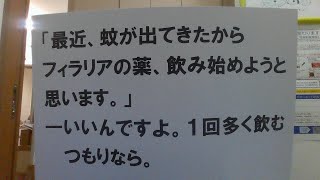 「最近、蚊が出てきたから
フィラリアの薬、飲み始めようと
思います。」
―いいんですよ。１回多く飲む
つもりなら。